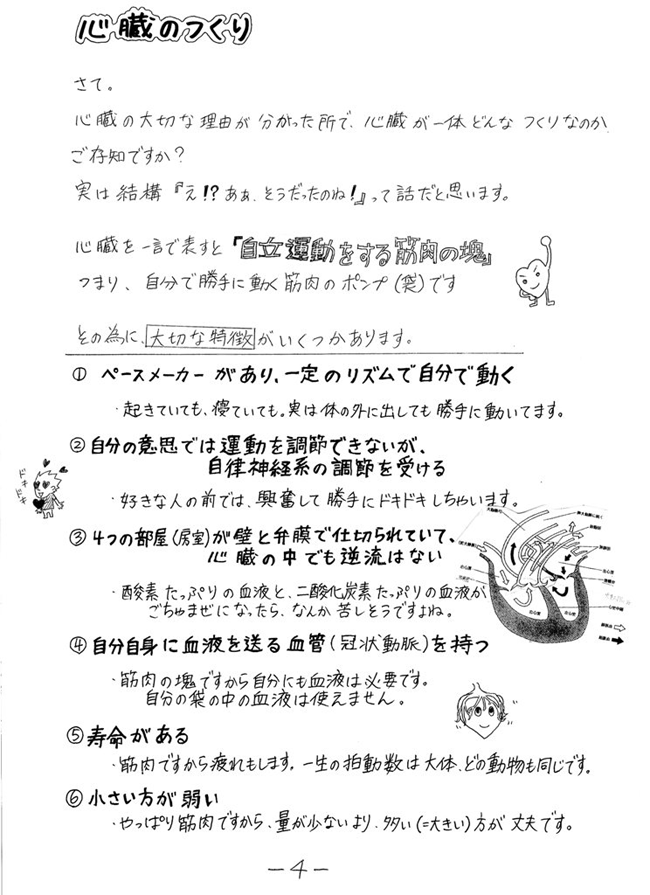 心臓のつくり
さて。
心臓の大切な理由が分かった所で、心臓が一体どんなつくりなのか
ご存知ですか?
実は結構『え!?あぁ、そうだったのね!』って話だと思います。
心臓を一言で表すと「自立運動をする筋肉の塊」
つまり、自分で勝手に動く筋肉のポンプ(袋)です
その為に、大切な特徴がいくつかあります。
① ペースメーカーがあり、一定のリズムで自分で動く
・起きていても、寝ていても。実は体の外に出しても勝手に動いてます。
② 自分の意思では運動を調節できないが、
自律神経系の調節を受ける
ドキドキ
・好きな人の前では、興奮して勝手にドキドキしちゃいます。
③ 4つの部屋(房室)が壁と弁膜で仕切られていて、
心臓の中でも逆流はない
・酸素たっぷりの血液と、二酸化炭素たっぷりの血液が
ごちゃまぜになったら、なんか苦しそうですよね。
④ 自分自身に血液を送る血管(冠状動脈)を持つ
・筋肉の塊ですから自分にも血液は必要です。
自分の袋の中の血液は使えません。
⑤ 寿命がある
・筋肉ですから疲れもします。一生の拍動数は大体、どの動物も同じです。
⑥ 小さい方が弱い
・やっぱり筋肉ですから、量が少ないより、多い(=大きい)方が丈夫です。
-4-